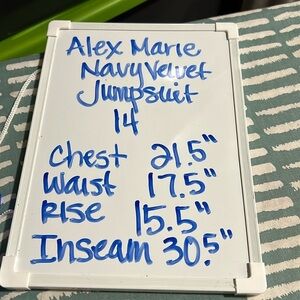 Alex Marie
Navy Velvet
Jumpsuit
14
Chest 21.5"
Waist 17.5"
Rise 15.5"
Inseam 30.5"